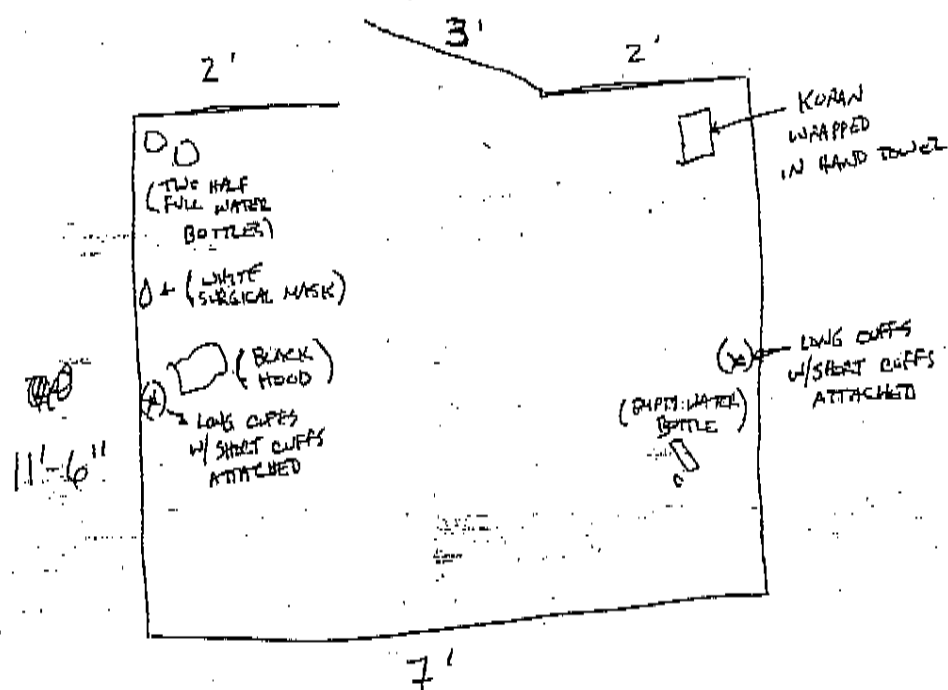 3'
2'
2'
KORAN
WRAPPED
IN HAND TOWEL
(TWO HALF
FULL WATER
BOTTLES)
(WHITE
SURGICAL MASK)
(BLACK
HOOD)
LONG CUFFS
W/ SHORT CUFFS
ATTACHED
LONG CUFFS
W/ SHORT CUFFS
ATTACHED
(EMPTY WATER
BOTTLE)
11'-6"
7'